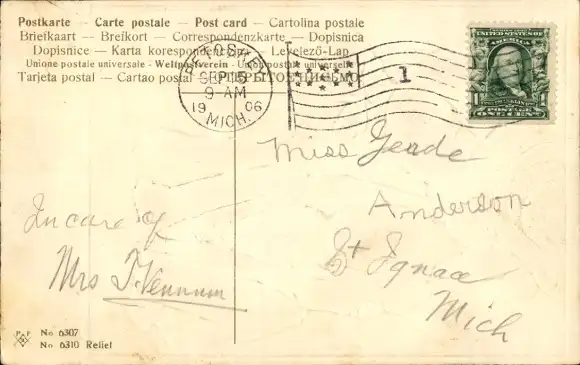 Postkarte – Carte postale – Post card – Cartolina postale
Briefkaart – Brefkort – Correspondenzkarte – Dopisnica
Dopisnice – Karta korespondencyjna – Levelező-Lap
Unione postale universale - Weltpostverein - Union postale universelle
Tarjeta postal – Cartao postal ОТКРЫТОЕ ПИСЬМО
SEP 15
9 AM
19 06
MICH.
1
UNITED STATES OF
AMERICA
1 1
POSTAGE
ONE CENT
Miss
Anderson
St Ignace
Mich
In care of
Mrs
No 6307
No 6310 Relief